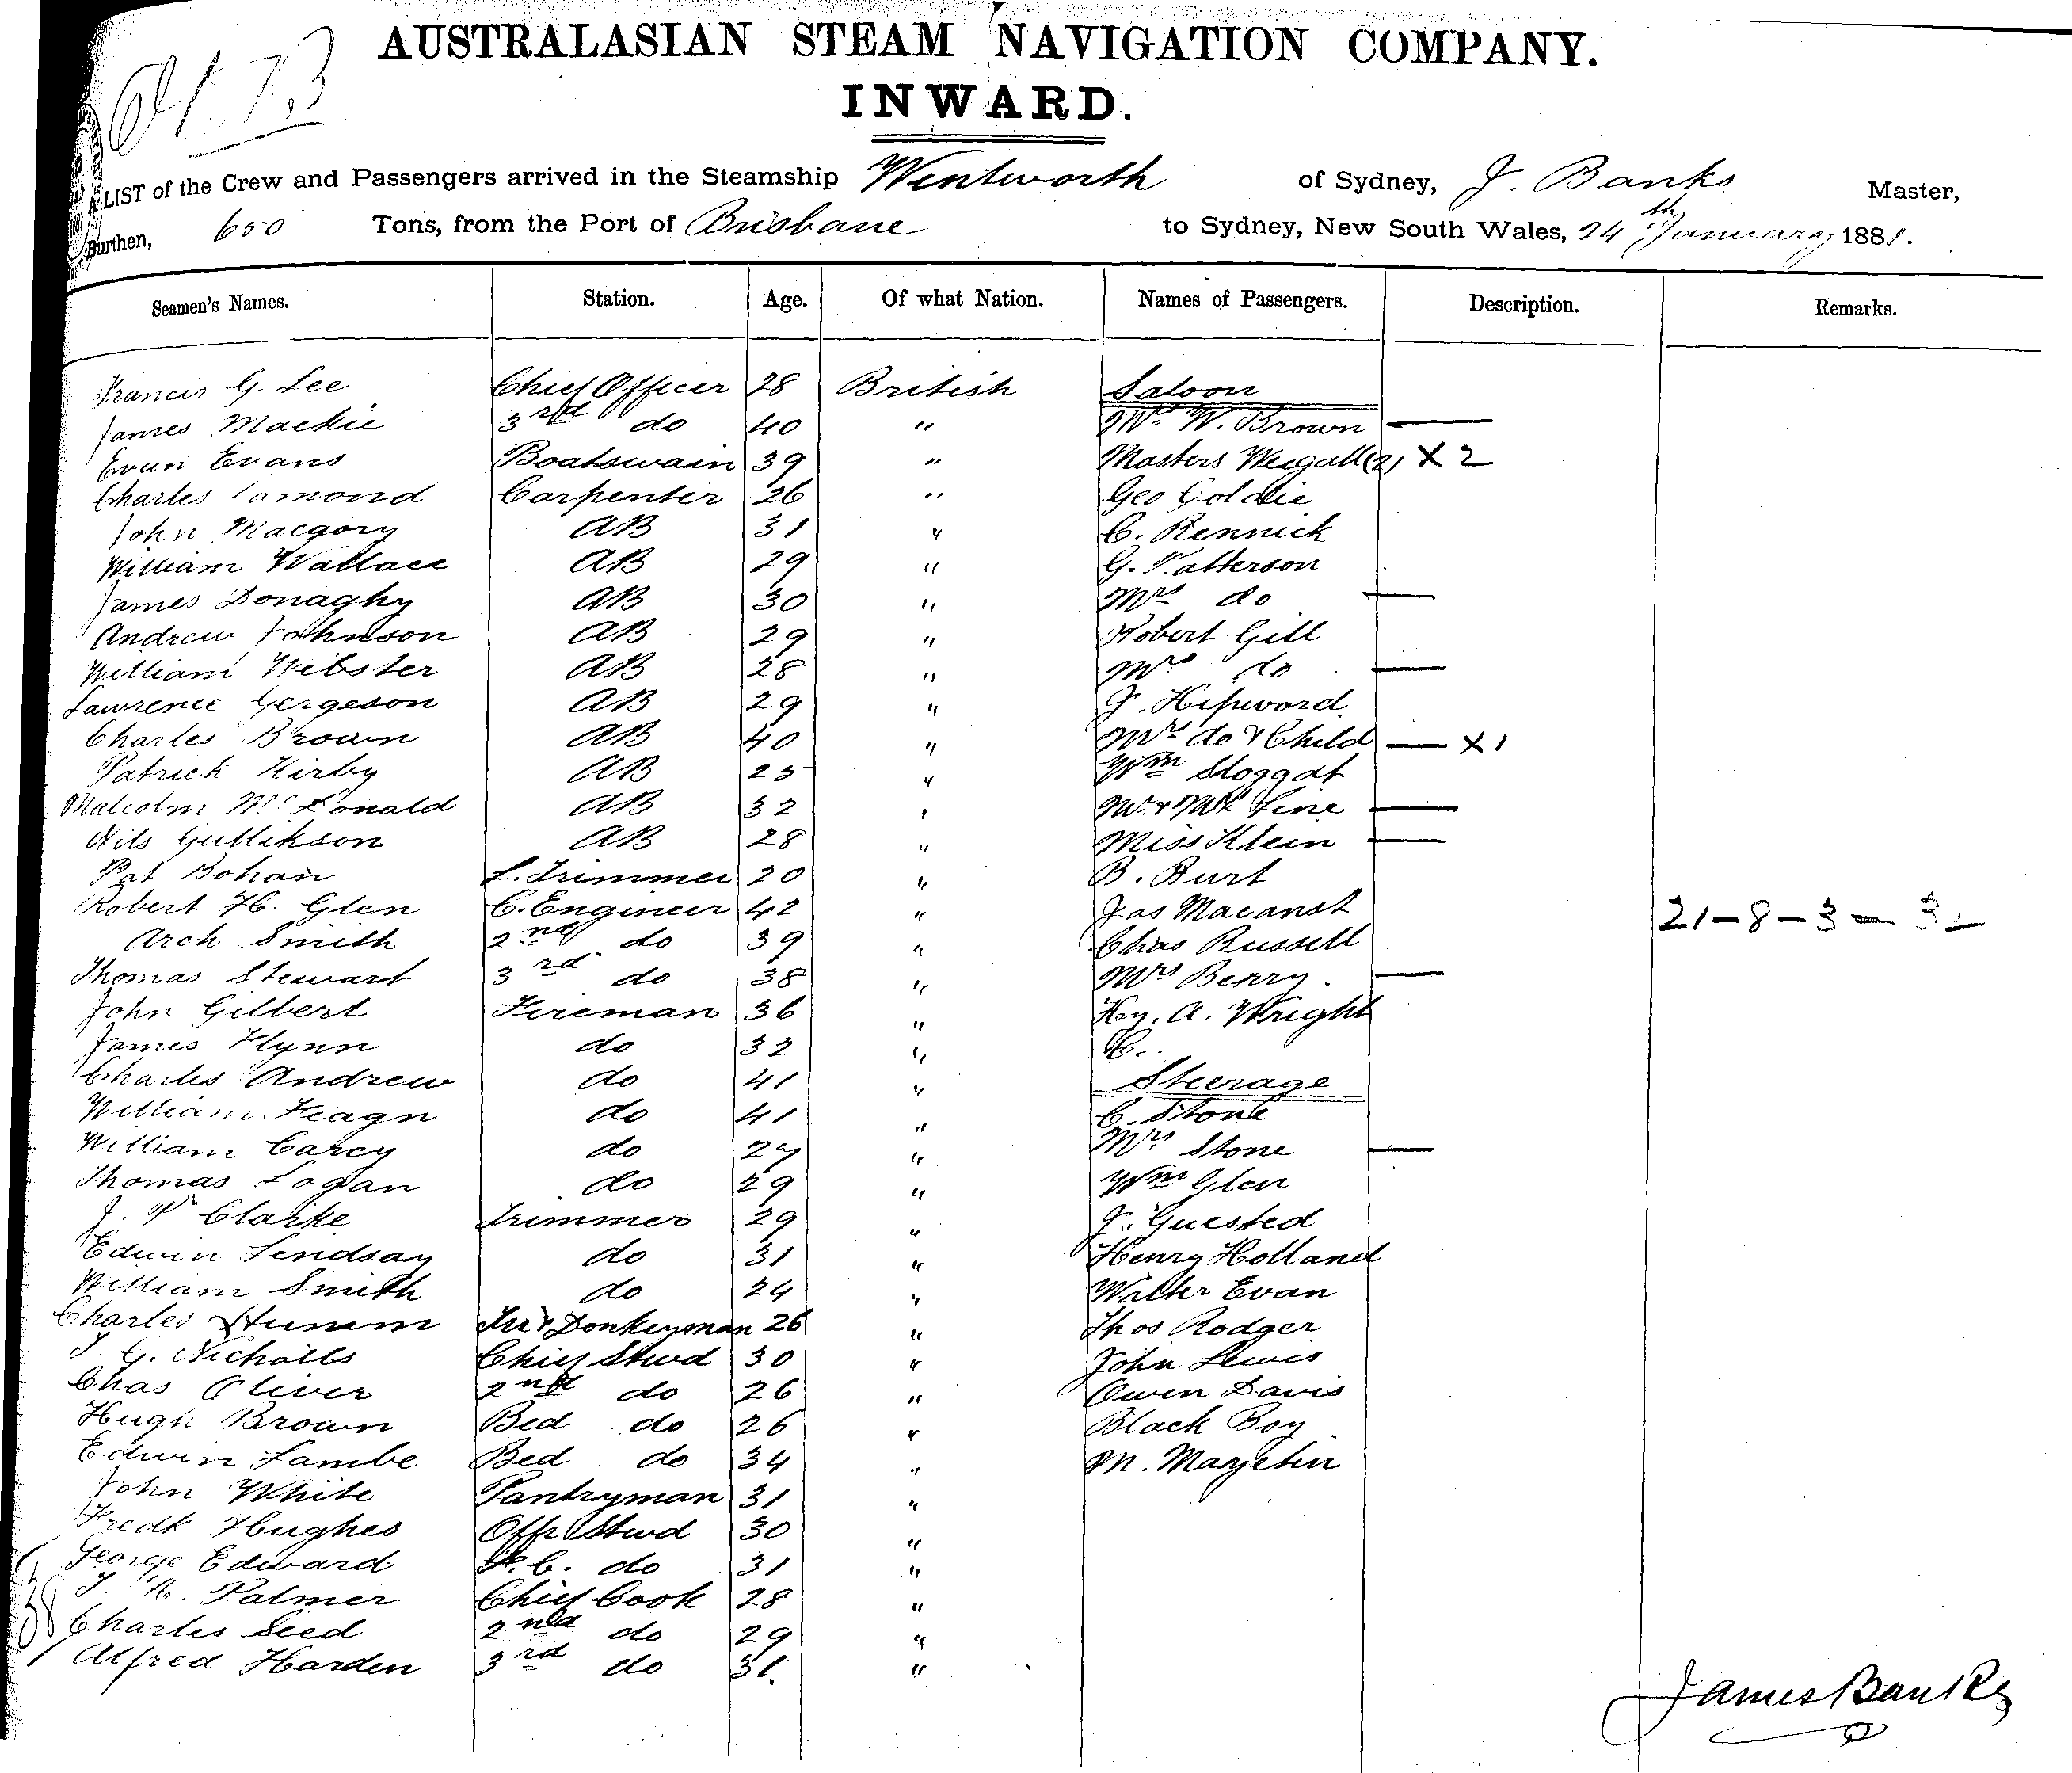 AUSTRALASIAN STEAM NAVIGATION COMPANY.
INWARD.
A LIST of the Crew and Passengers arrived in the Steamship Wentworth of Sydney, J. Banks Master,
Burthen, 650 Tons, from the Port of Brisbane to Sydney, New South Wales, 24th January 1881.
Seamen's Names. Station. Age. Of what Nation. Names of Passengers. Description. Remarks.
Francis G. Lee Chief Officer 28 British Saloon
James Mackie 3rd do 40 " Mrs W. Brown —
Evan Evans Boatswain 39 " Masters Weigall (2) X 2
Charles Lamond Carpenter 26 " Geo Goldie
John Macgory AB 31 " C. Rennick
William Wallace AB 29 " G. Patterson
James Donaghy AB 30 " Mrs do —
Andrew Johnson AB 29 " Robert Gill
William Webster AB 28 " Mrs do —
Lawrence Gergeson AB 29 " J. Hipword
Charles Brown AB 40 " Mrs do & Child — X 1
Patrick Kirby AB 25 " Wm Sloggat
Malcolm McDonald AB 32 " Mr & Mrs Line —
Nils Gullikson AB 28 " Miss Klein —
Pat Bohan L. Trimmer 20 " B. Burt
Robert H. Glen C. Engineer 42 " Jas Macanst 21 – 8 – 3 –
Arch Smith 2nd do 39 " Chas Russell
Thomas Stewart 3rd do 38 " Mrs Berry —
John Gilbert Fireman 36 " Hy. A. Wright
James Flynn do 32 "
Charles Andrew do 41 " Steerage
William do 41 " C. Stone
William Carey do 27 " Mrs Stone —
Thomas Logan do 29 " Wm Glen
J. P Clarke Trimmer 29 " J. Guested
Edwin Lindsay do 31 " Henry Holland
William Smith do 24 " Walter Evan
Charles Donkeyman 26 " Thos Rodger
J. G. Nicholls Chief Stwd 30 " John Lewis
Chas Oliver 2nd do 26 " Owen Davis
Hugh Brown Bed do 26 " Black Boy
Edwin Lambe Bed do 34 " M. Marjetin
John White Pantryman 31 "
Fredk Hughes Offr Stwd 30 "
George Edward F. C. do 31 "
J. H. Palmer Chief Cook 28 "
Charles Seed 2nd do 29 "
38
Alfred Harden 3rd do 31. "
James Banks